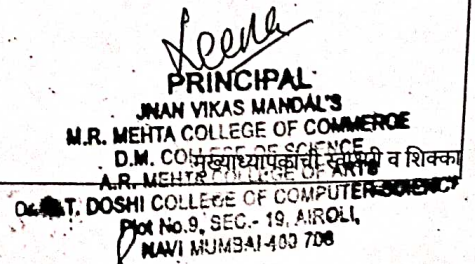 Leena
PRINCIPAL
JNAN VIKAS MANDAL'S
M.R. MEHTA COLLEGE OF COMMERCE
D.M. COLLEGE OF SCIENCE
मुख्याध्यापकाची स्वाक्षरी व शिक्का
A.R. MEHTA COLLEGE OF ARTS
T. DOSHI COLLEGE OF COMPUTER SCIENCE
Plot No.9, SEC.- 19, AIROLI,
NAVI MUMBAI-400 708